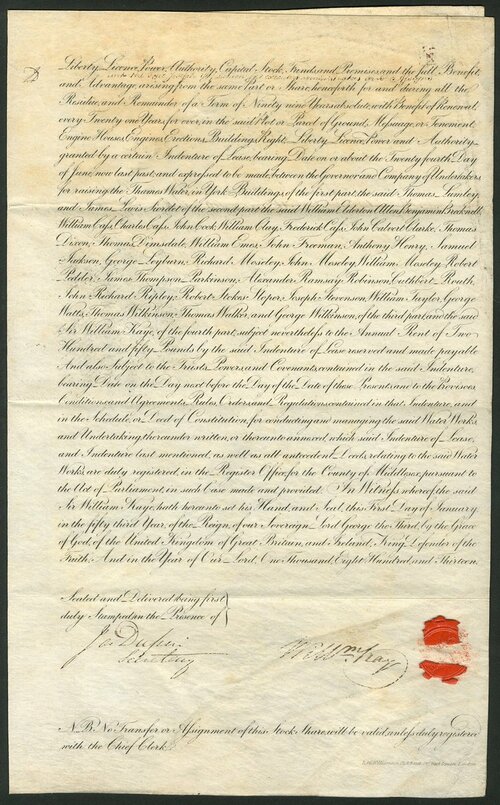 Liberty, Licence, Power, Authority, Capital Stock, Funds, and Premises and the full Benefit,
and Advantage, arising from the same Part or Share, henceforth for and during all the
Residue, and Remainder of a Term of Ninety nine Years absolute, with Benefit of Renewal
every Twenty one Years for ever, in the said Plot or Parcel of Ground, Messuage, or Tenement
Engine Houses, Engines, Erections, Buildings, Right Liberty Licence, Power and Authority
granted by a certain Indenture of Lease, bearing Date on or about the Twenty fourth Day
of June now last past, and expressed to be made, between the Governor and Company of Undertakers
for raising the Thames Water, in York Buildings, of the first part, the said Thomas Lumley
and James of the second part, the said William Elderton Allen, Benjamin Brecknell
William Cass, Charles Cass, John Cook, William Clay, Frederick Cass, John Calvert Clarke, Thomas
Dixon, Thomas Dinsdale, William Emes, John Freeman, Anthony Henry, Samuel
Jackson, George Leyburn, Richard Moseley, John Moseley, William Moseley, Robert
Pedder, James Thompson Parkinson, Alexander Ramsay Robinson, Cuthbert Routh,
John Richard Ripley, Robert Stokes, Joseph Stevenson, William Taylor, George
Watts, Thomas Wilkinson, Thomas Walker, and George Wilkinson, of the third part, and the said
Sir William Kaye, of the fourth part, subject nevertheless to the Annual Rent of Two
Hundred and fifty Pounds by the said Indenture of Lease reserved and made payable
And also Subject to the Trusts, Powers, and Covenants contained in the said Indenture,
bearing Date on the Day next before the Day of the Date of these Presents, and to the Provisoes
Conditions, and Agreements, Rules, Orders, and Regulations contained in that Indenture, and
in the Schedule, or Deed of Constitution, for conducting and managing the said Water Works
and Undertaking thereunder written, or thereunto annexed, which said Indenture of Lease,
and Indenture last mentioned, as well as all antecedent Deeds, relating to the said Water
Works, are duly registered, in the Register Office, for the County of Middlesex, pursuant to
the Act of Parliament, in such Case made and provided. In Witness whereof the said
Sir William Kaye, hath hereunto set his Hand, and Seal, this First Day of January
in the fifty third Year, of the Reign, of our Sovereign Lord George the Third, by the Grace
of God, of the United Kingdom of Great Britain, and Ireland, King, Defender of the
Faith And in the Year of Our Lord, One Thousand, Eight Hundred and Thirteen.
Sealed and Delivered (being first
duly Stamped) in the Presence of
Secretary
N.B. No Transfer or Assignment of this Stock Share, will be valid, unless duly registered
with the Chief Clerk